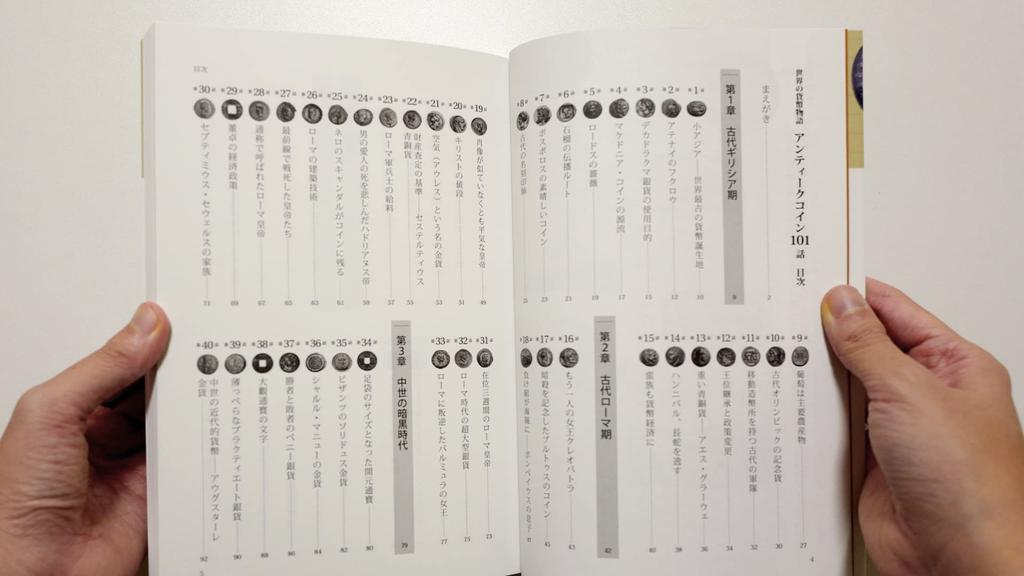 世界の貨幣物語 アンティークコイン101話 目次
まえがき 2
第1章 古代ギリシア期 9
第1話 小アジア——世界最古の貨幣誕生地 10
第2話 アテナイのフクロウ 12
第3話 デカドラクマ銀貨の使用目的 15
第4話 マケドニア・コインの源流 17
第5話 ロードスの薔薇 19
第6話 石榴の伝播ルート 21
第7話 ボスポロスの素晴しいコイン 23
第8話 古代の名刺印御 25
第9話 葡萄は主要農産物 27
第10話 古代オリンピックの記念貨 30
第11話 移動造幣所を持つ古代の軍隊 32
第12話 王位継承と政策変更 34
第13話 重い青銅貨——アエス・グラーウェ 36
第14話 ハンニバル、長蛇を逸す 38
第15話 蛮族も貨幣経済に 40
第2章 古代ローマ期 42
第16話 もう一人の女王クレオパトラ 43
第17話 暗殺を記念したブルトゥスのコイン 45
第18話 負け組が海賊に——ポンペイウスの息子
第19話 肖像が似ていなくとも平気な皇帝 49
第20話 キリストの値段 51
第21話 空気(アウレス)という名の金貨 53
第22話 財産査定の基準——セステルティウス
青銅貨 55
第23話 ローマ軍兵士の給料 57
第24話 男の愛人の死を悲しんだハドリアヌス帝 59
第25話 ネロのスキャンダルがコインに残る 61
第26話 ローマの建築技術 63
第27話 最前線で戦死した皇帝たち 65
第28話 通称で呼ばれたローマ皇帝 67
第29話 董卓の経済政策 69
第30話 セプティミウス・セウェルスの家族 71
第31話 在位三週間のローマ皇帝 73
第32話 ローマ時代の超大型銀貨 75
第33話 ローマに叛逆したパルミュラの女王 77
第3章 中世の暗黒時代 79
第34話 足袋のサイズとなった開元通寶 80
第35話 ビザンツのソリドュス金貨 82
第36話 シャルル・マニューの金貨 84
第37話 勝者と敗者のペニー銀貨 86
第38話 大觀通寶の文字 88
第39話 薄っぺらなブラクティエート銀貨 90
第40話 中世の近代的貨幣——アウグスターレ
金貨 92
目次
4
5